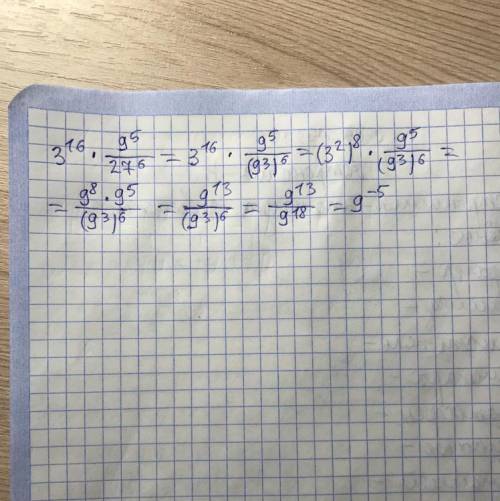 3^16 · 9^5/27^6 = 3^16 · 9^5/(9^3)^6 = (3^2)^8 · 9^5/(9^3)^6 =
= 9^8 · 9^5/(9^3)^6 = 9^13/(9^3)^6 = 9^13/9^18 = 9^-5